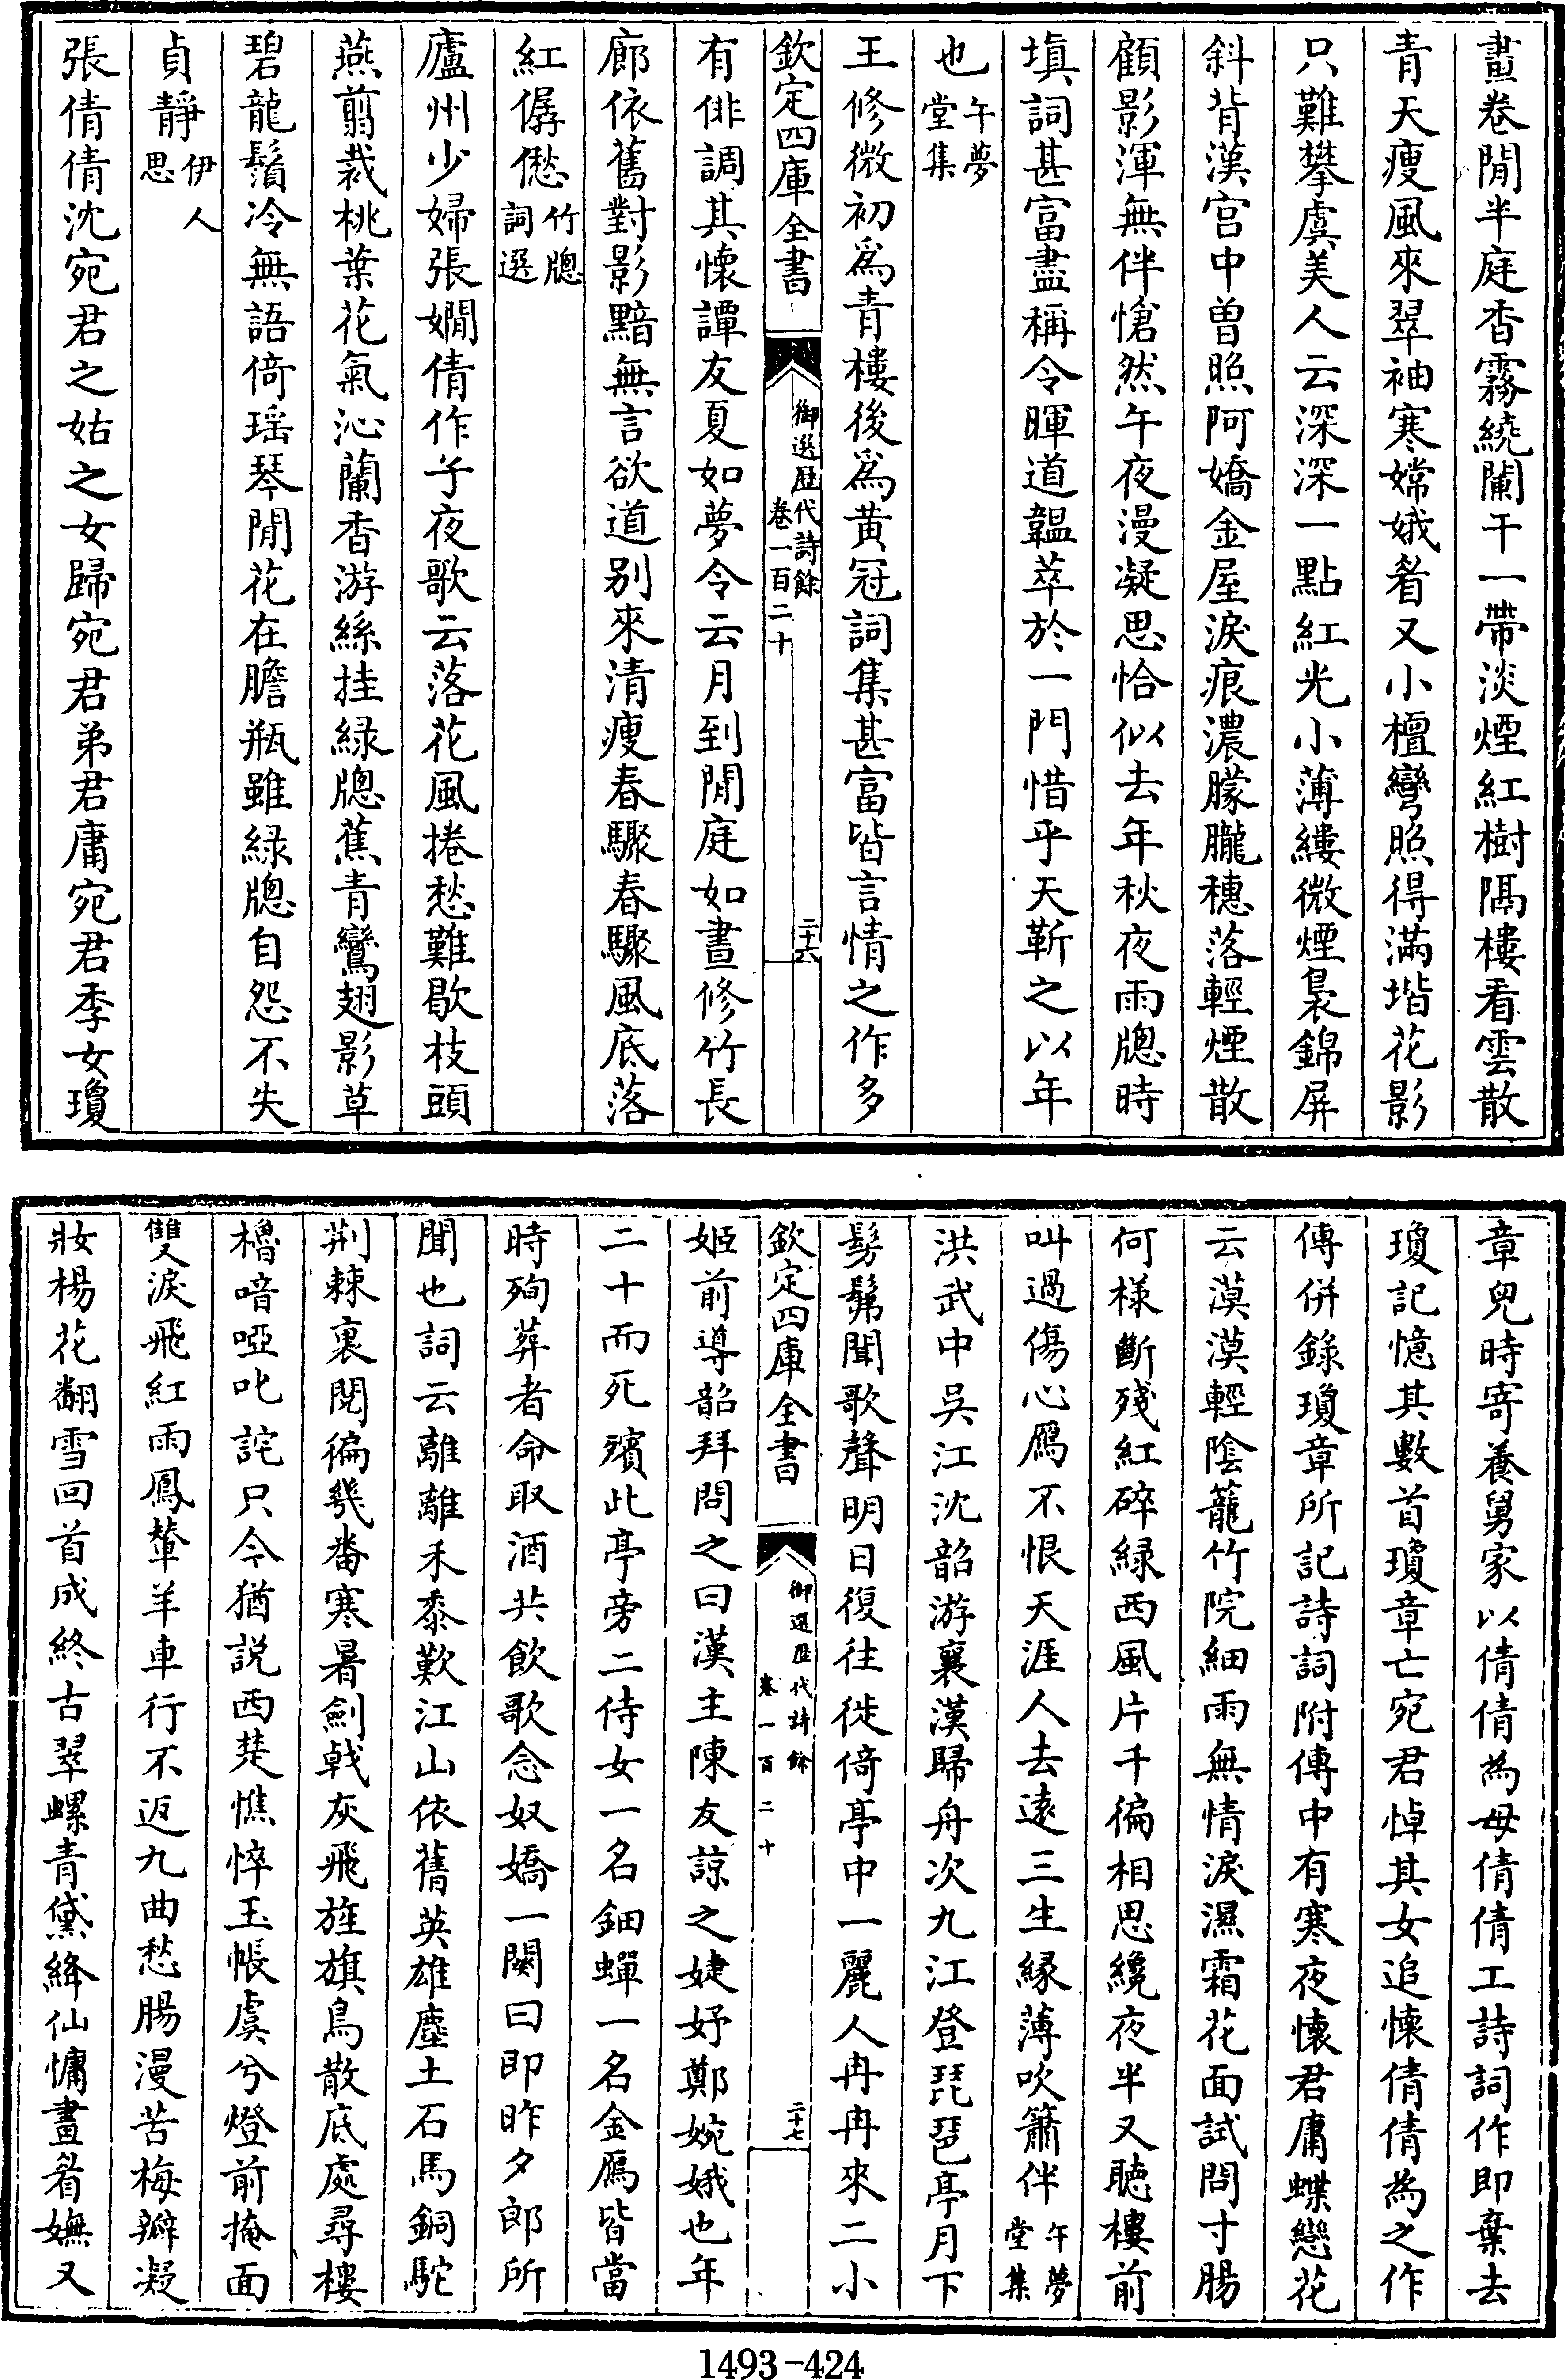 畫卷閒半庭香霧繞闌干一帶淡煙紅樹隔樓看雲散
青天瘦風來翠袖寒嫦娥眉又小檀彎照得滿堦花影
只難攀虞美人云深深一點紅光小薄縷微煙裊錦屏
斜背漢宮中曾照阿嬌金屋淚痕濃朦朧穗落輕煙散
顧影渾無伴愴然午夜漫凝思恰似去年秋夜雨牕時
填詞甚富盡稱令暉道韞萃於一門惜乎天靳之以年
也午夢堂集
王修微初爲青樓後爲黃冠詞集甚富皆言情之作多
欽定四庫全書 御選歷代詩餘 卷一百二十 二十六
有俳調其懷譚友夏如夢令云月到閒庭如晝修竹長
廊依舊對影黯無言欲道别來清瘦春驟春驟風底落
紅僝僽竹牕詞選
廬州少婦張嫺倩作子夜歌云落花風捲愁難歇枝頭
燕翦裁桃葉花氣沁蘭香游絲挂緑牕蕉青鸞翅影草
碧龍鬚冷無語倚瑶琴閒花在膽瓶雖緑牕自怨不失
貞靜伊人思
張倩倩沈宛君之姑之女歸宛君弟君庸宛君季女瓊
章兒時寄養舅家以倩倩為母倩倩工詩詞作即棄去
瓊記憶其數首瓊章亡宛君悼其女追懷倩倩為之作
傳併錄瓊章所記詩詞附傳中有寒夜懷君庸蝶戀花
云漠漠輕陰籠竹院細雨無情淚濕霜花面試問寸腸
何様斷殘紅碎緑西風片千徧相思纔夜半又聽樓前
叫過傷心鴈不恨天涯人去遠三生緣薄吹簫伴午夢堂集
洪武中吳江沈韶游襄漢歸舟次九江登琵琶亭月下
髣髴聞歌聲明日復往徙倚亭中一麗人冉冉來二小
欽定四庫全書 御選歷代詩餘 卷一百二十 二十七
姬前導韶拜問之曰漢主陳友諒之婕妤鄭婉娥也年
二十而死殯此亭旁二侍女一名鈿蟬一名金鴈皆當
時殉葬者命取酒共飲歌念奴嬌一闋曰即昨夕郎所
聞也詞云離離禾黍歎江山依舊英雄塵土石馬銅駝
荆棘裏閱徧幾番寒暑劍戟灰飛旌旗鳥散底處尋樓
櫓喑啞叱詫只今猶説西楚憔悴玉帳虞兮燈前掩面
雙淚飛紅雨鳳輦羊車行不返九曲愁腸漫苦梅瓣凝
妝楊花翻雪回首成終古翠螺青黛絳仙慵畫眉嫵又
1493-424